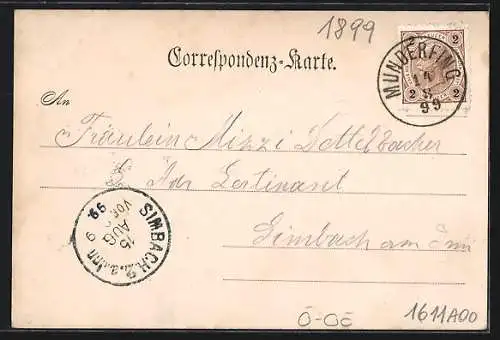 1899
Correspondenz-Karte.
2 2
2 2
MUNDERFING
14
8
99
An
Fräulein Mizzi Dettelbacher
Adr
Simbach am Inn
SIMBACH. 2. a. Inn
15
AUG
VOR
9
99.
Ö-OÖ
1611A00